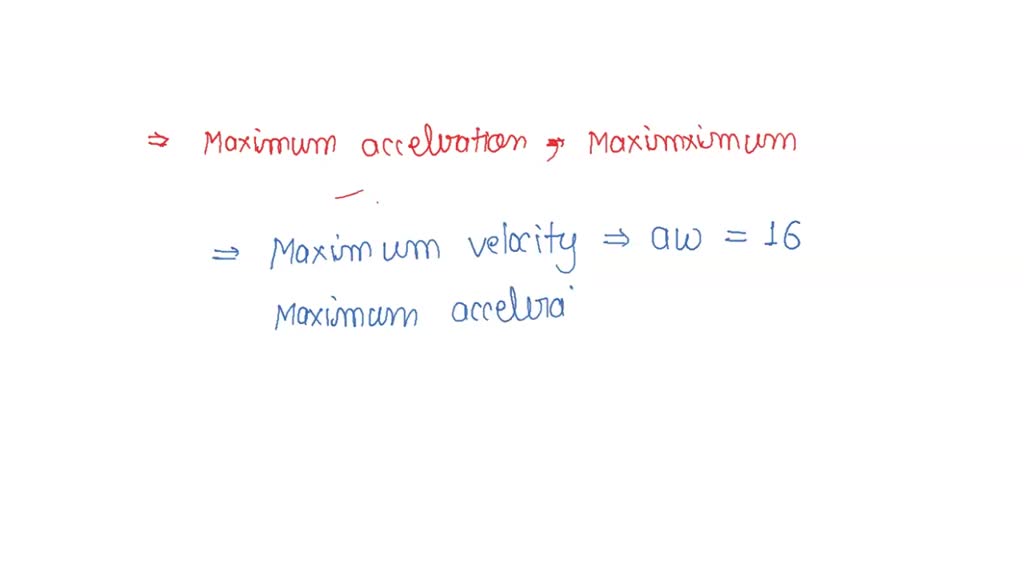 ⇒ Maximum accelvation , Maximximum
⇒ Maximum velocity ⇒ aω = 16
Maximum accelvai